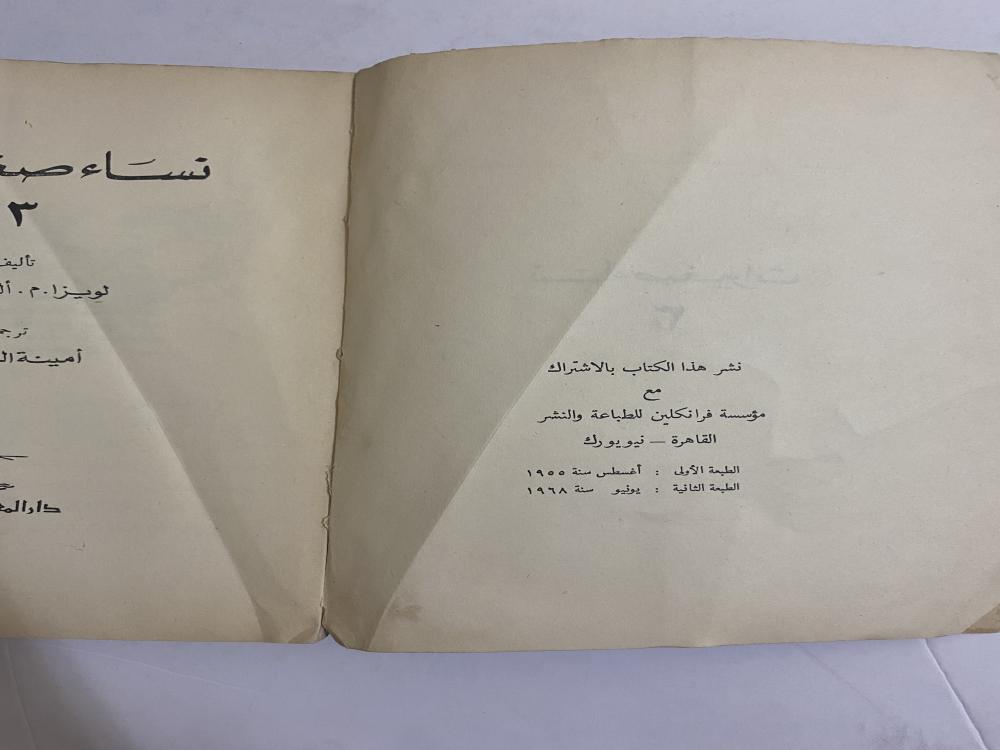 نشر هذا الكتاب بالاشتراك
مع
مؤسسة فرانكلين للطباعة والنشر
القاهرة — نيويورك
الطبعة الأولى : أغسطس سنة ١٩٥٥
الطبعة الثانية : يونيو سنة ١٩٦٨
نساء
٣
تأليف
لويزا . م .
أمينة